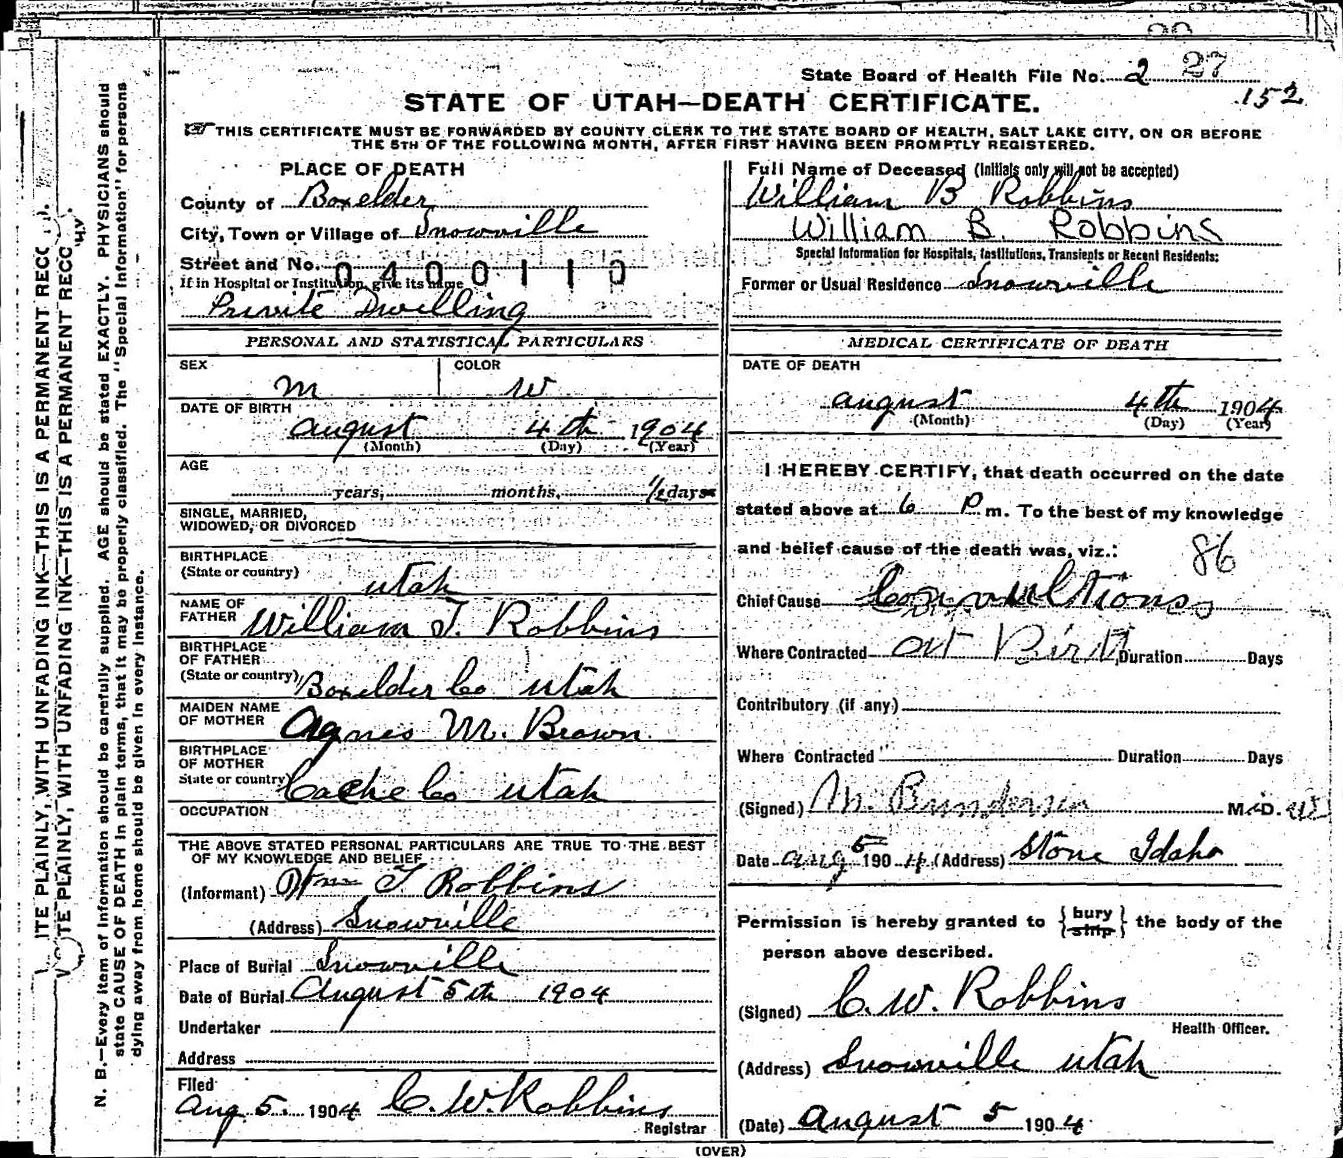 State Board of Health File No. 2 27
152
STATE OF UTAH—DEATH CERTIFICATE.
☞ THIS CERTIFICATE MUST BE FORWARDED BY COUNTY CLERK TO THE STATE BOARD OF HEALTH, SALT LAKE CITY, ON OR BEFORE
THE 5TH OF THE FOLLOWING MONTH, AFTER FIRST HAVING BEEN PROMPTLY REGISTERED.
PLACE OF DEATH
County of Boxelder
City, Town or Village of Snowville
Street and No. 0400110
If in Hospital or Institution, give its name
Privite Dwelling
Full Name of Deceased (Initials only will not be accepted)
William B Robbins
William B. Robbins
Special Information for Hospitals, Institutions, Transients or Recent Residents:
Former or Usual Residence Snowville
PERSONAL AND STATISTICAL PARTICULARS
SEX
m
COLOR
w
DATE OF BIRTH
august 4th 1904
(Month) (Day) (Year)
AGE
years, months, 1/2 days
SINGLE, MARRIED,
WIDOWED, OR DIVORCED
BIRTHPLACE
(State or country)
utah
NAME OF
FATHER William T. Robbins
BIRTHPLACE
OF FATHER
(State or country) Boxelder Co utah
MAIDEN NAME
OF MOTHER Agnes M. Brown
BIRTHPLACE
OF MOTHER
State or country) Cache Co utah
OCCUPATION
THE ABOVE STATED PERSONAL PARTICULARS ARE TRUE TO THE BEST
OF MY KNOWLEDGE AND BELIEF
(Informant) Wm T Robbins
(Address) Snowville
Place of Burial Snowville
Date of Burial August 5th 1904
Undertaker
Address
Filed
Aug 5. 1904 C. W. Robbins
Registrar
MEDICAL CERTIFICATE OF DEATH
DATE OF DEATH
august 4th 1904
(Month) (Day) (Year)
I HEREBY CERTIFY, that death occurred on the date
stated above at 6 P m. To the best of my knowledge
and belief cause of the death was, viz.:
86
Chief Cause Convultions
Where Contracted at Birth Duration Days
Contributory (if any)
Where Contracted Duration Days
(Signed) M. M.D.
Date aug 5 1904 (Address) Stone Idaho
Permission is hereby granted to {bury ship} the body of the
person above described.
(Signed) C. W. Robbins
Health Officer.
(Address) Snowville utah
(Date) August 5 1904
(OVER)
ITE PLAINLY, WITH UNFADING INK—THIS IS A PERMANENT RECC
TE PLAINLY, WITH UNFADING INK—THIS IS A PERMANENT RECC
N. B.—Every item of information should be carefully supplied. AGE should be stated EXACTLY. PHYSICIANS should
state CAUSE OF DEATH in plain terms, that it may be properly classified. The "Special Information" for persons
dying away from home should be given in every instance.